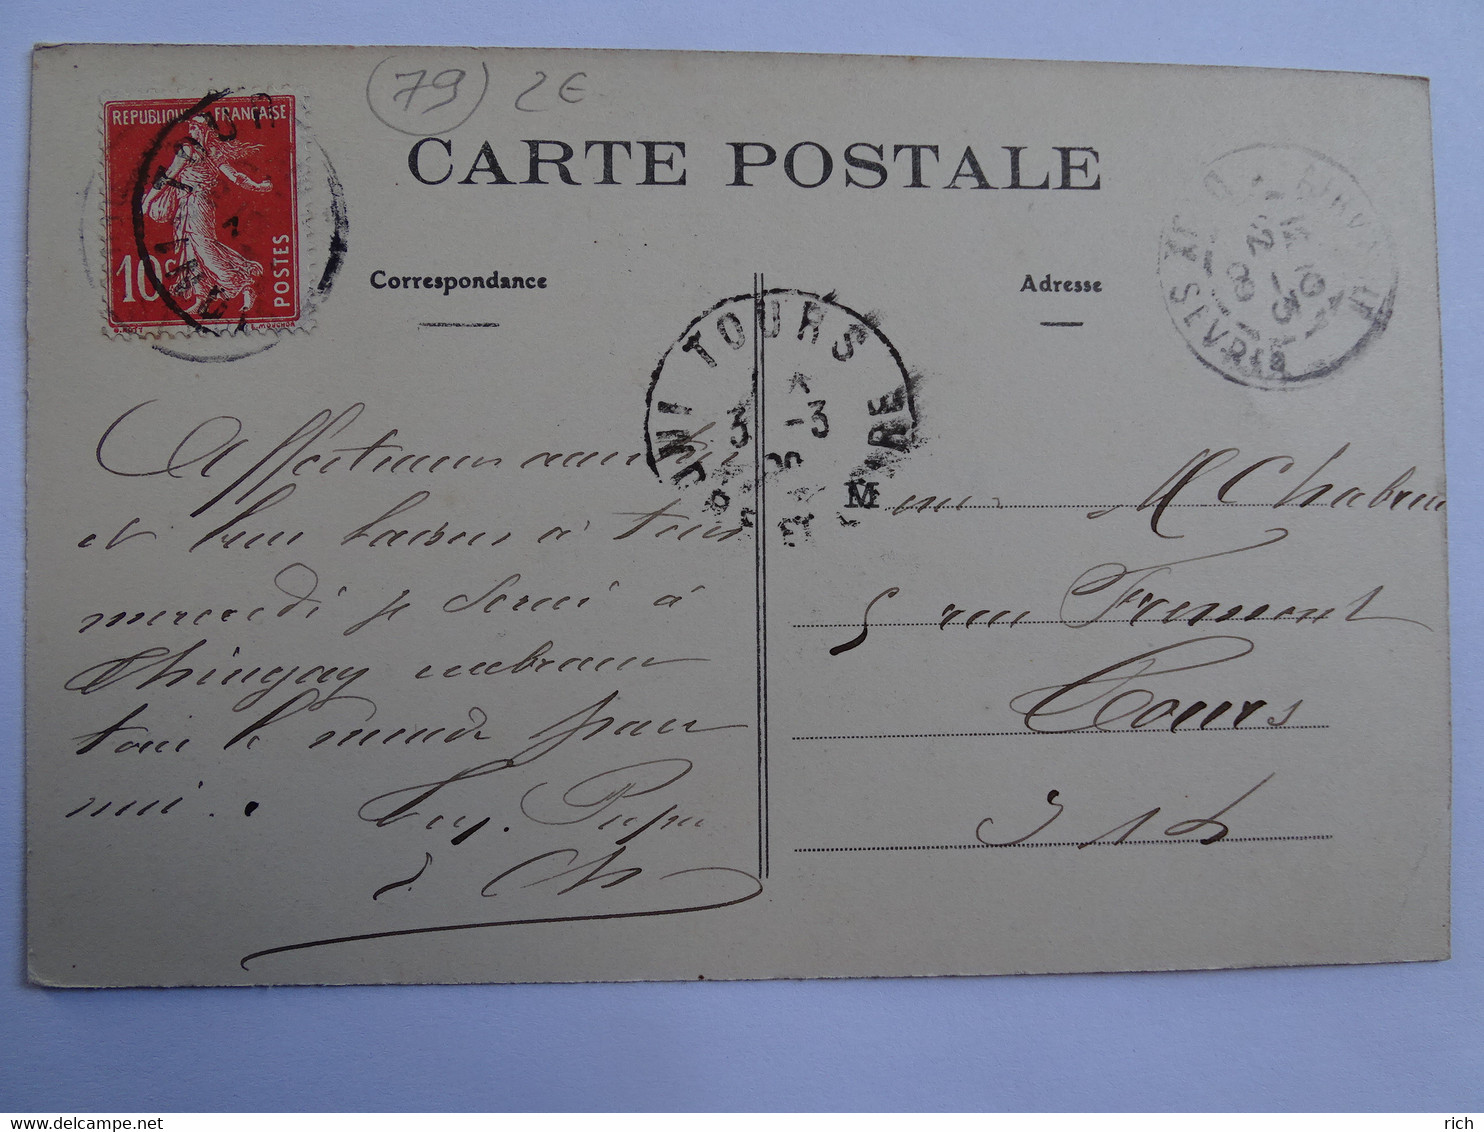 (79) 2€
REPUBLIQUE FRANÇAISE
10c
POSTES
E. MOUCHON
CARTE POSTALE
Correspondance
Adresse
TOURS
3 -3
2 -3
SEVRES
Affectueux
et bons baisers à tous
mercredi je serai à
Thingay embrasse
tout le monde pour
moi.
Ch
M
M Chabrun
5 rue Fremont
Tours
I et L
Delcampe.net
rich